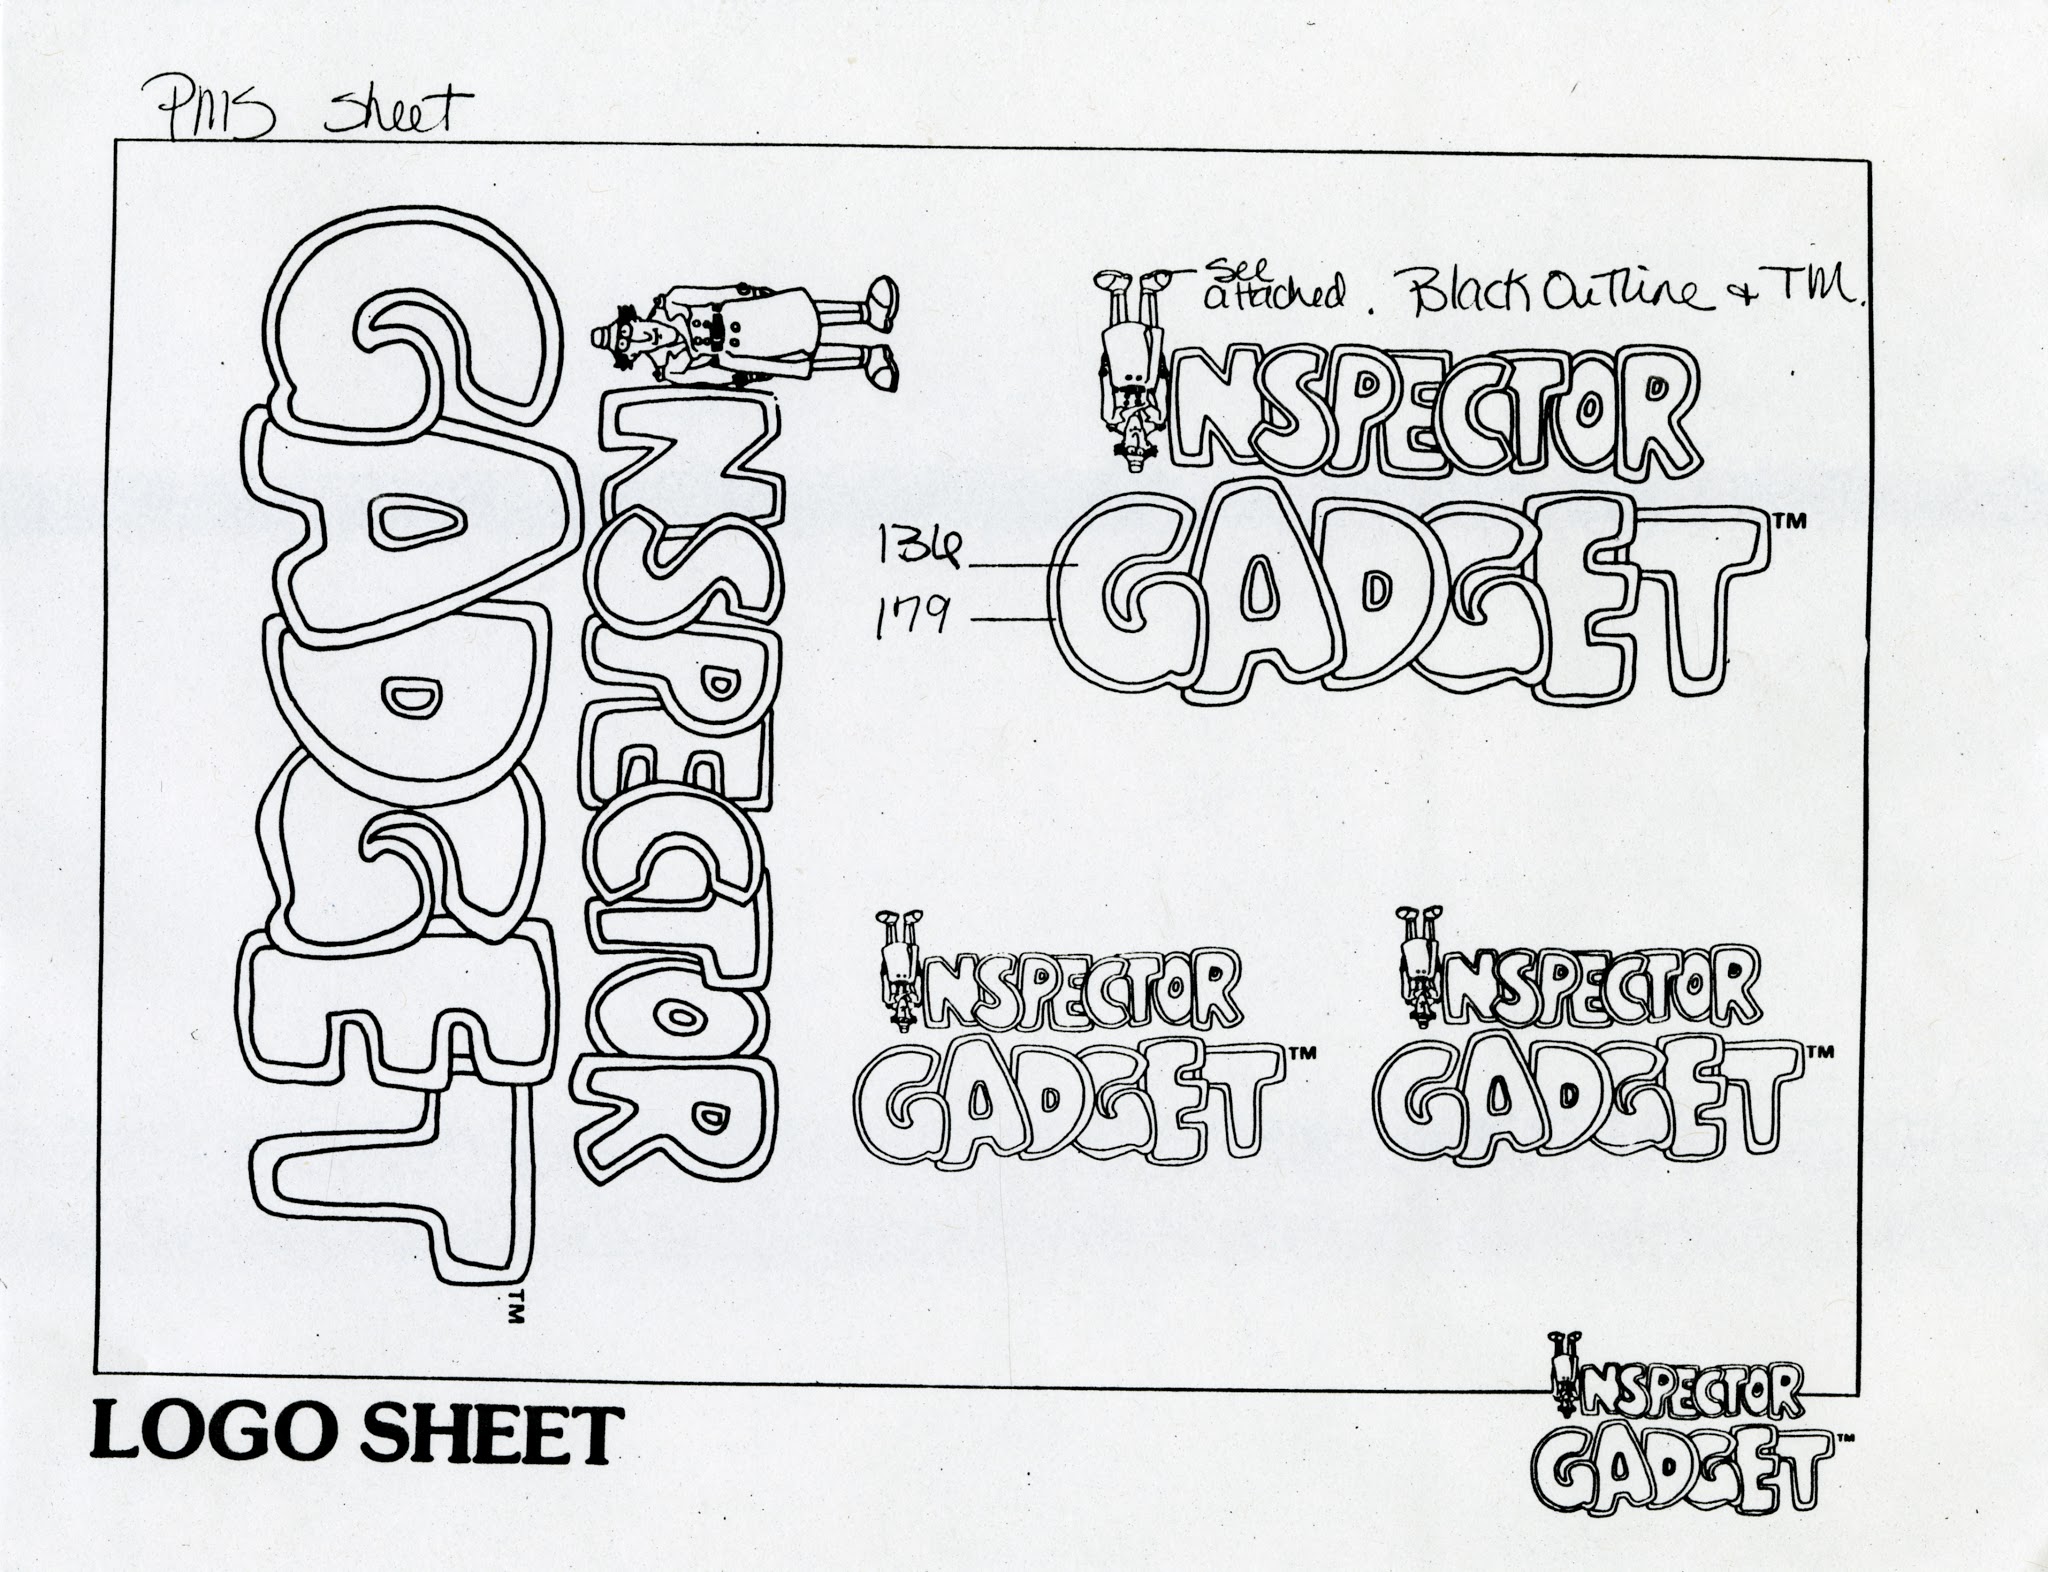 PMS Sheet
INSPECTOR
GADGET™
see
attached. Black Outline & TM.
INSPECTOR
GADGET™
136
179
INSPECTOR
GADGET™
INSPECTOR
GADGET™
LOGO SHEET
INSPECTOR
GADGET™